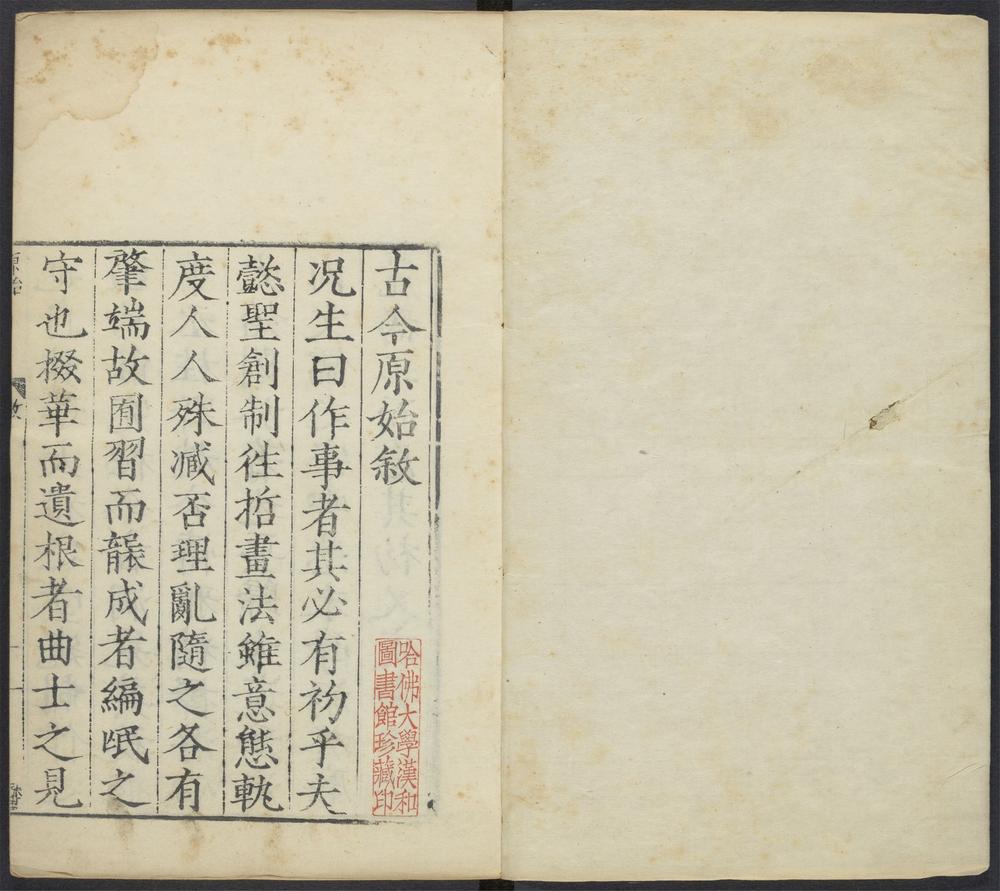 古今原始敘
况生曰作事者其必有初乎夫
懿聖創制徃哲畫法雖意態軌
度人人殊臧否理亂隨之各有
肇端故囿習而誤成者編氓之
守也掇華而遺根者曲士之見
哈佛大學漢和
圖書館珍藏印
原始
敘